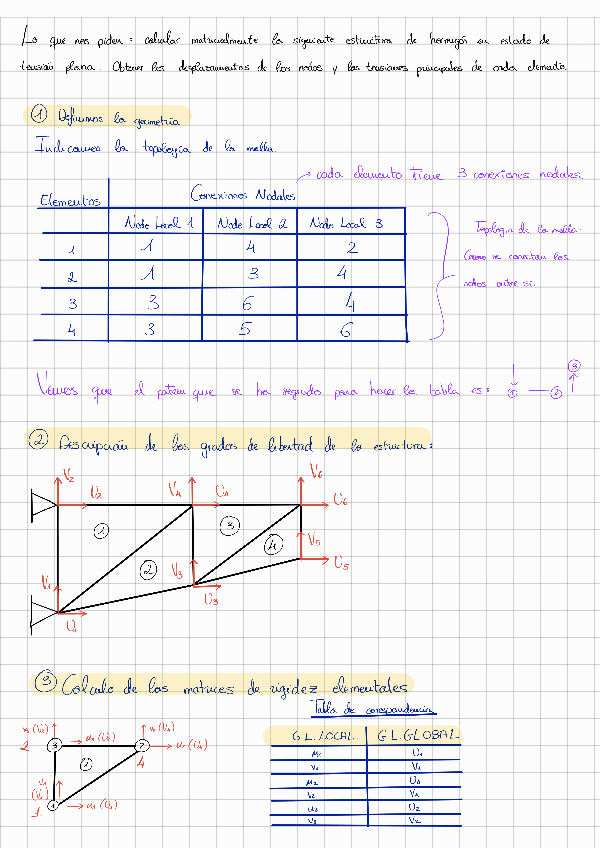 Lo que nos piden: calcular matricialmente la siguiente estructura de hormigón en estado de
tensión plana. Obtener los desplazamientos de los nodos y las tensiones principales de cada elemento.
① Definimos la geometría
Indicamos la topología de la malla.
→ cada elemento tiene 3 conexiones nodales.
Elementos Conexiones Nodales
Nodo Local 1 Nodo Local 2 Nodo Local 3
1 1 4 2
2 1 3 4
3 3 6 4
4 3 5 6
Topología de la malla.
Como se conectan los
nodos entre si.
Vemos que el patrón que se ha seguido para hacer la tabla es: ① ② ③
② Descripción de los grados de libertad de la estructura:
V2 U2 V4 U4 V6 U6
① ③ ④ V5
② V3 U5
V1 U3
U1
③ Calculo de las matrices de rigidez elementales
Tabla de correspondencia
G.L. LOCAL G.L. GLOBAL
u1 U1
v1 V1
u2 U4
v2 V4
u3 U2
v3 V2
v3 (V2) u3 (U2) v2 (V4) u2 (U4)
2 ③ ② 4
①
v1 (V1)
1 ① u1 (U1)